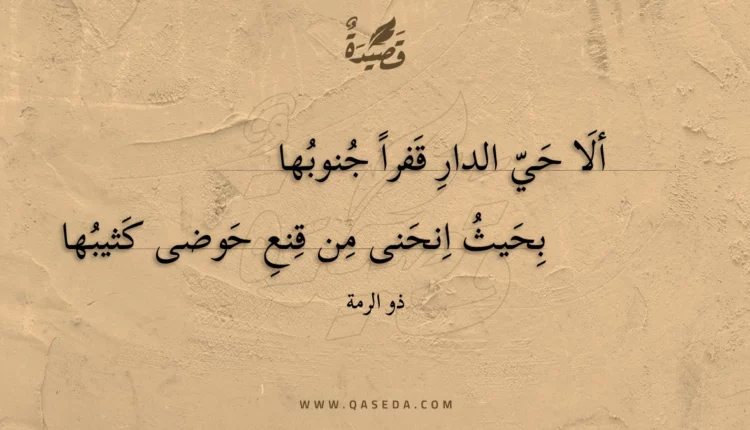 قَصِيْدَةٌ
ألَا حَيّ الدارِ قَفراً جُنوبُها
بِحَيثُ اِنحَنى مِن قِنعِ حَوضى كَثيبُها
ذو الرمة
WWW.QASEDA.COM